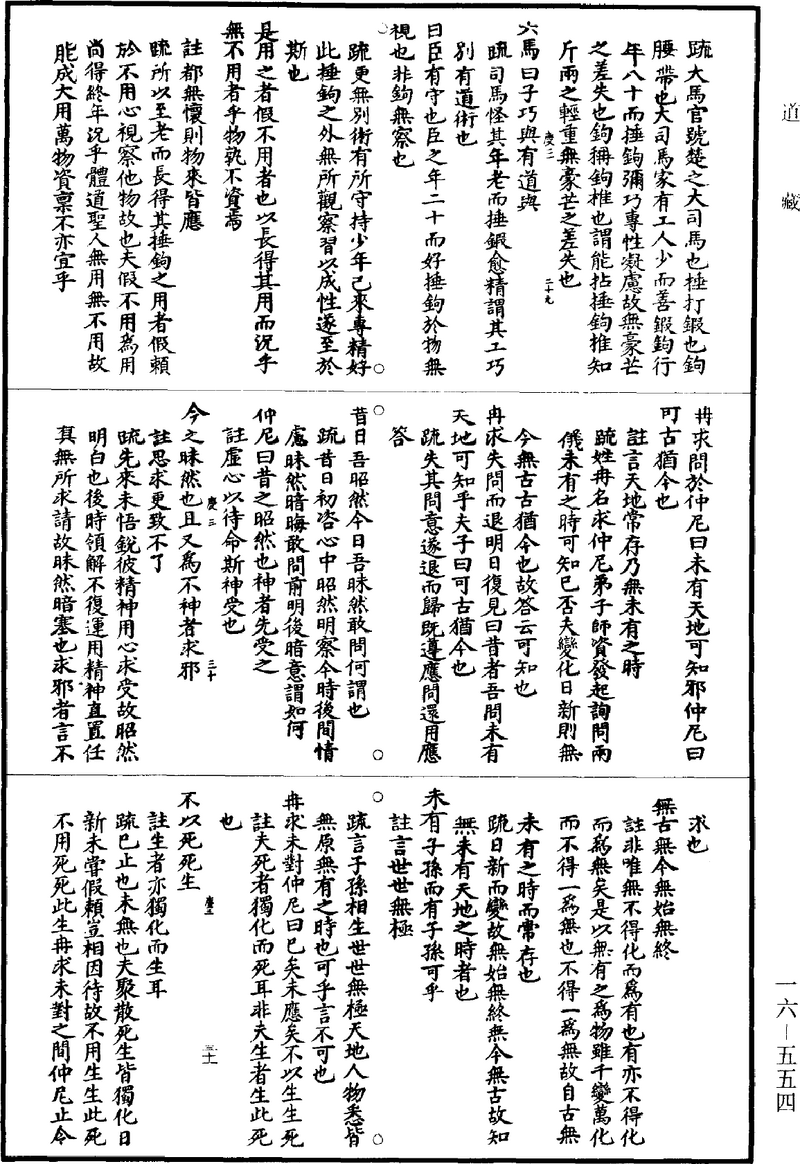 道藏
疏大馬官號楚之大司馬也捶打鍜也鉤
腰帶也大司馬家有工人少而善鍜鉤行
年八十而捶鉤彌巧專性凝慮故無豪芒
之差失也鉤稱鉤椎也謂能拈捶鉤椎知
斤兩之輕重無豪芒之差失也
慶三
二十九
大馬曰子巧與有道與
疏司馬怪其年老而捶鍜愈精謂其工巧
別有道術也
曰臣有守也臣之年二十而好捶鉤於物無
視也非鉤無察也
疏更無別術有所守持少年已來專精好
此捶鉤之外無所觀察習以成性遂至於
斯也
是用之者假不用者也以長得其用而況乎
無不用者乎物孰不資焉
註都無懷則物來皆應
疏所以至老而長得其捶鉤之用者假賴
於不用心視察他物故也夫假不用為用
尚得終年況乎體道聖人無用無不用故
能成大用萬物資稟不亦宜乎
冉求問於仲尼曰未有天地可知邪仲尼曰
可古猶今也
註言天地常存乃無未有之時
疏姓冉名求仲尼弟子師資發起詢問兩
儀未有之時可知已否夫變化日新則無
今無古古猶今也故答云可知也
冉求失問而退明日復見曰昔者吾問未有
天地可知乎夫子曰可古猶今也
疏失其問意遂退而歸既遵應問還用應
答
昔日吾昭然今日吾昧然敢問何謂也
疏昔日初咨心中昭然明察今時後閒情
慮昧然暗晦敢問前明後暗意謂如何
仲尼曰昔之昭然也神者先受之
註虛心以待命斯神受也
慶三
三十
今之昧然也且又為不神者求邪
註思求更致不了
疏先來未悟銳彼精神用心求受故昭然
明白也後時領解不復運用精神直置任
真無所求請故昧然暗塞也求邪者言不
求也
無古無今無始無終
註非唯無不得化而為有也有亦不得化
而為無矣是以無有之為物雖千變萬化
而不得一為無也不得一為無故自古無
未有之時而常存也
疏日新而變故無始無終無今無古故知
無未有天地之時者也
未有子孫而有子孫可乎
註言世世無極
疏言子孫相生世世無極天地人物悉皆
無原無有之時也可乎言不可也
冉求未對仲尼曰已矣未應矣不以生生死
註夫死者獨化而死耳非夫生者生此死
也
慶三
三十一
不以死死生
註生者亦獨化而生耳
疏已止也未無也夫聚散死生皆獨化日
新未嘗假賴豈相因待故不用生生此死
不用死死此生冉求未對之間仲尼止令
一六—五五四